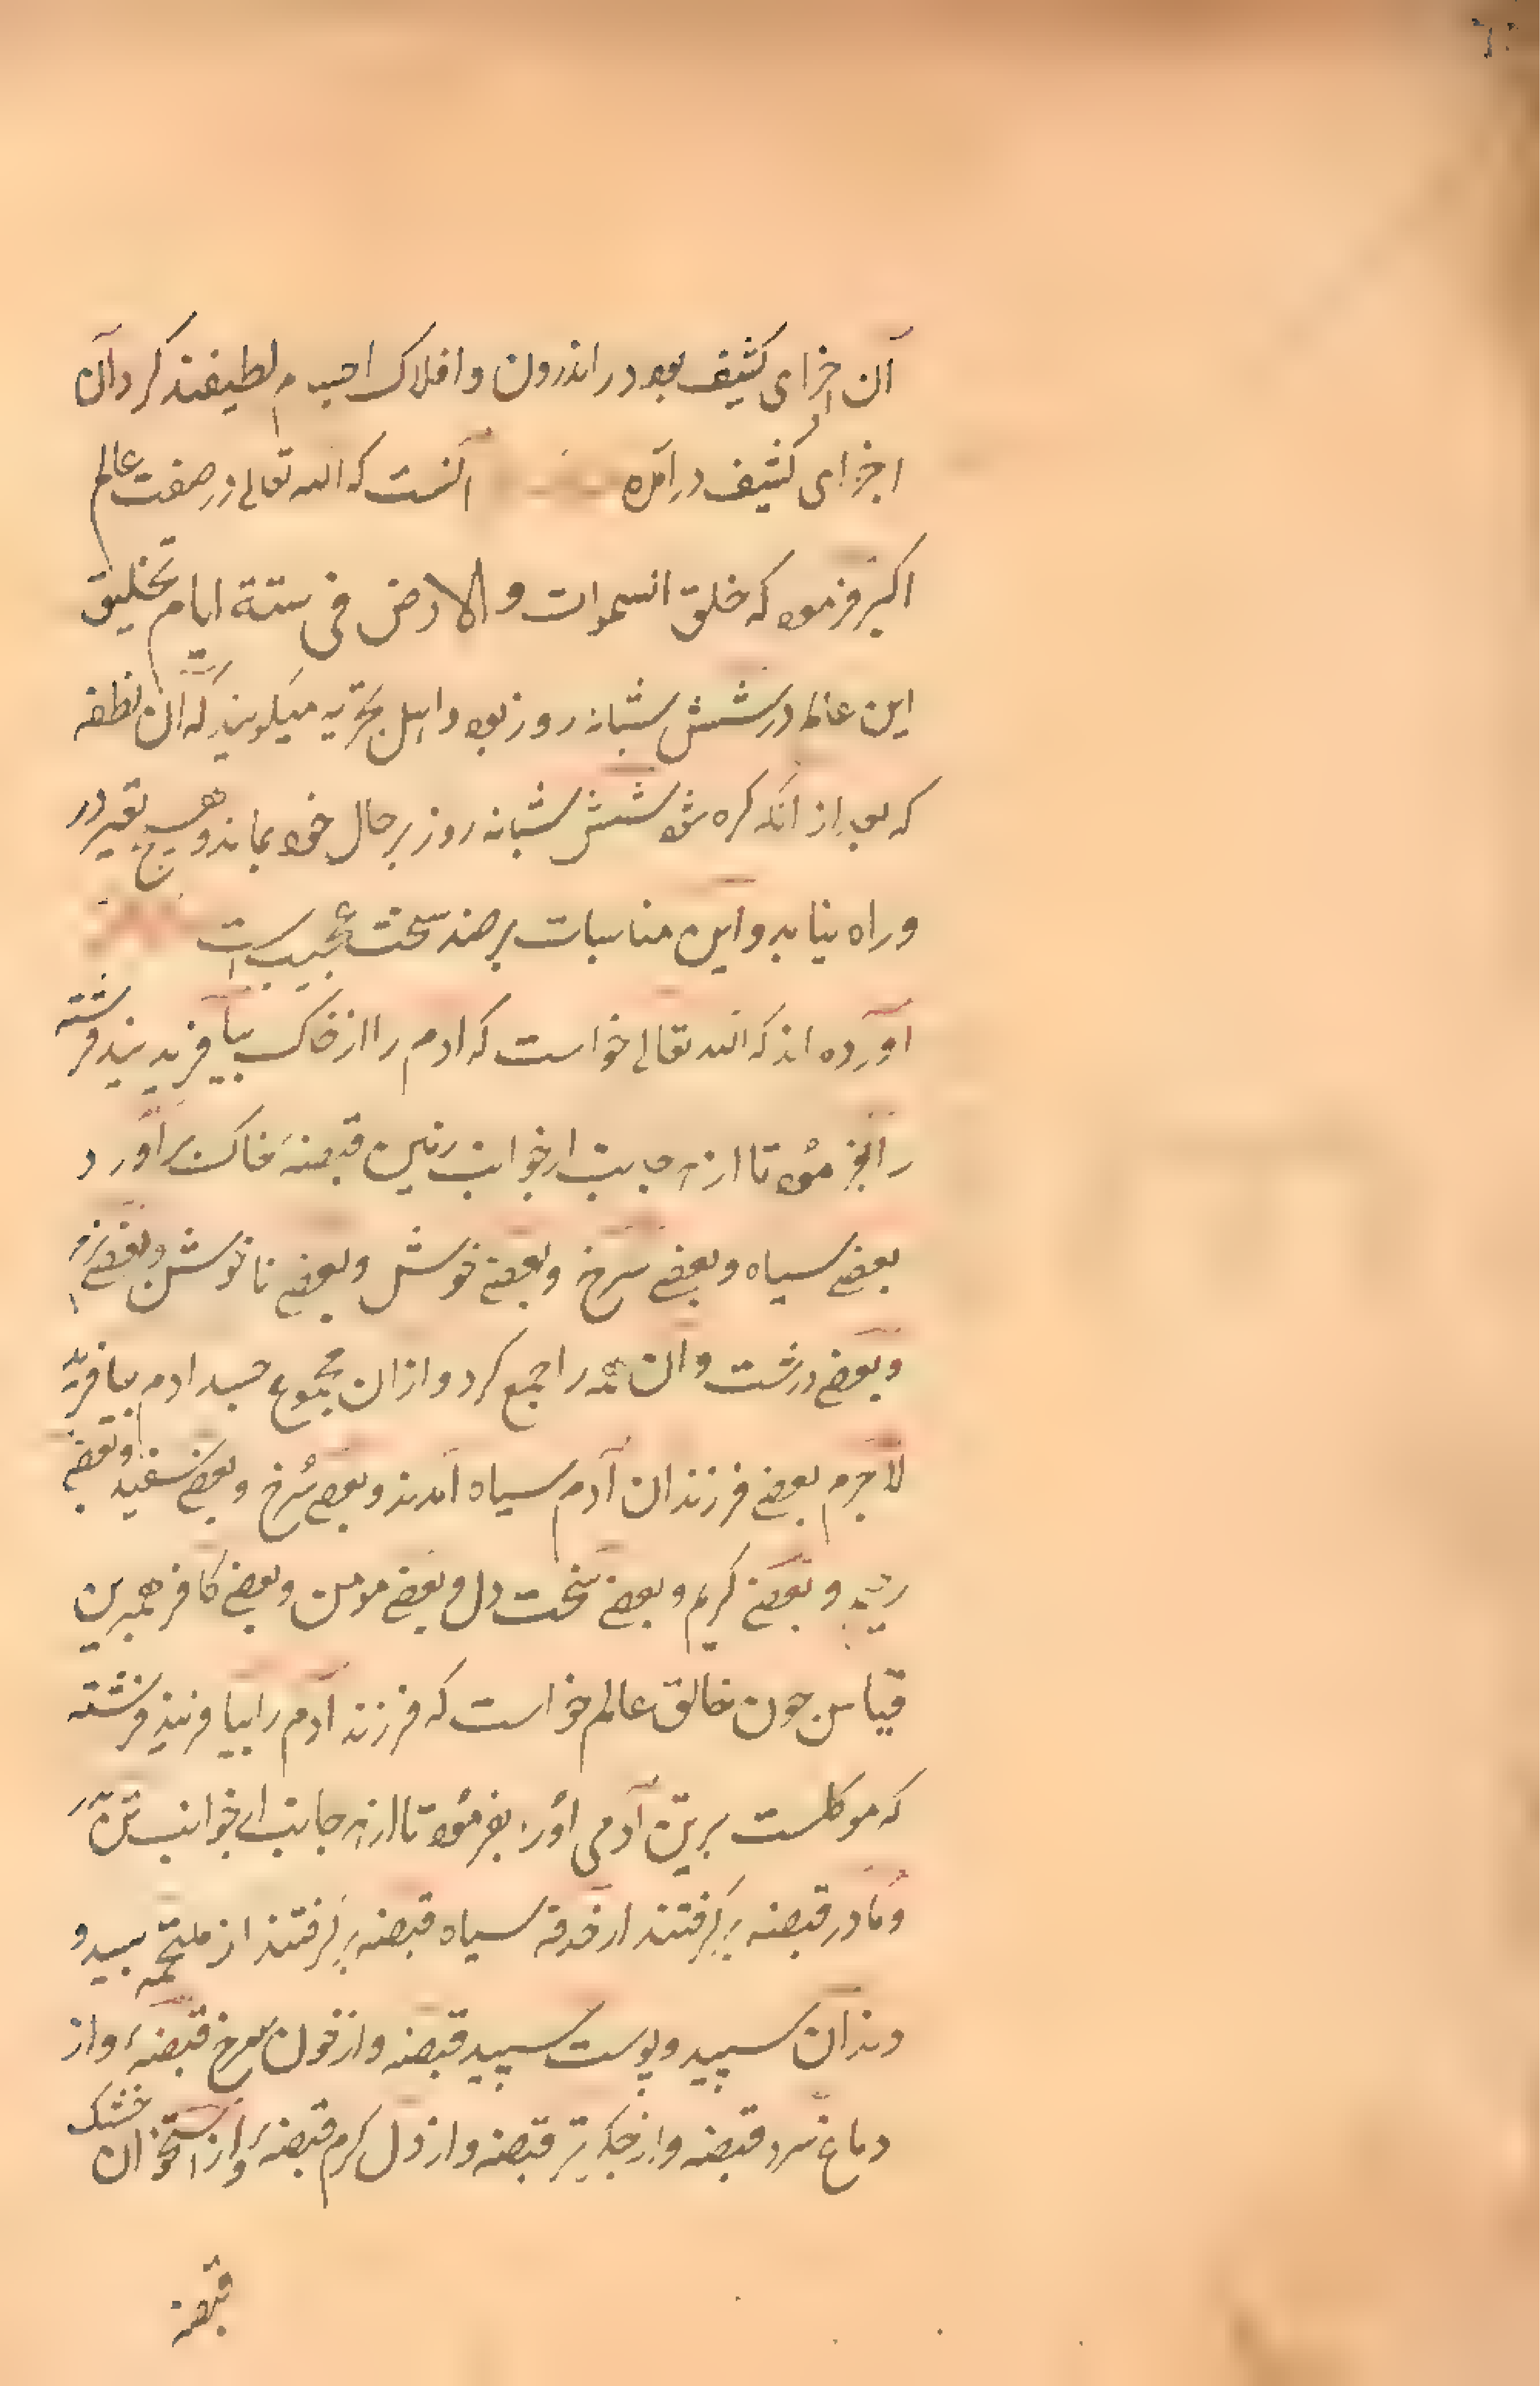 آن اجزای کثیف بود در اندرون و افلاک اجسام لطیفند کرد آن
اجزای کثیف در آمده آنست که الله تعالی در صفت عالم
اکبر فرمود که خلق السموات والارض فی ستة ایام تخلیق
این عالم در شش شبانه روز بود و اهل تجربه میکویند که آن نطفه
که بعد از آنکه کره شود شش شبانه روز بر حال خود بماند و هیچ تغیر در
و راه نیابد و این مناسبات بر صد سخت عجیب است
آورده اند که الله تعالی خواست که ادم را از خاک بیافریند فرشته
را بفرمود تا از هر جانب از جوانب زمین قبضه خاک برآورد
بعضی سیاه و بعضی سرخ و بعضی خوش و بعضی ناخوش و بعضی نرم
و بعضی درشت و آن همه را جمع کرد و از ان مجموع جسد ادم بیافرید
لاجرم بعضی فرزندان آدم سیاه آمدند و بعضی سُرخ و بعضی سفید و بعضی
و بعضی کریم و بعضی سخت دل و بعضی مومن و بعضی کافر همبرین
قیاس چون خالق عالم خواست که فرزند آدم را بیافریند فرشته
که موکلست برین آدمی بفرمود تا از هر جانب از جوانب تن
و مادر قبضه برگرفتند از حدقه سیاه قبضه برگرفتند از ملتحمه سپید و
دندان سپید و پوست سپید قبضه و از خون سرخ قبضهٔ و از
دماغ سرد قبضه و از جکر تر قبضه و از دل کرم قبضهٔ و از استخوان خشک
قبضه